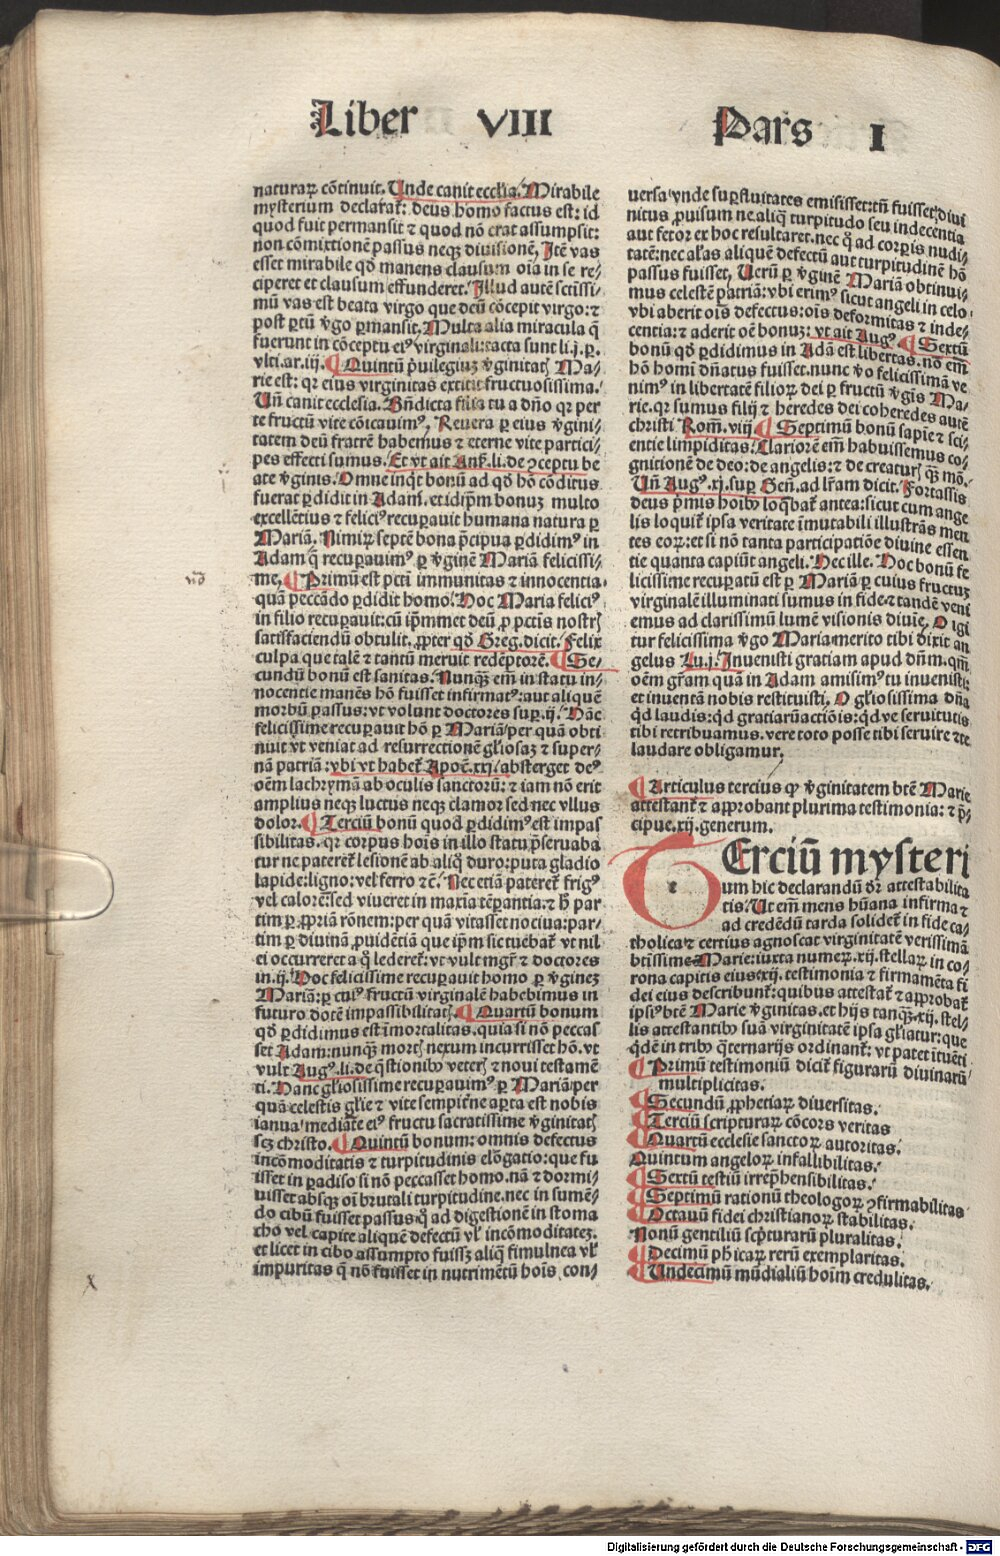 Liber VIII Pars I
naturaꝝ cōtinuit. Unde canit ecclia. Mirabile
mysterium declarat̄: deus homo factus est: id
quod fuit permansit ⁊ quod nō erat assumpsit:
non cōmixtionē passus neqꝫ divisionē, Itē vas
esset mirabile qđ manens clausum oīa in se re⸗
ciperet et clausum effunderet. Illud autē sctissi⸗
mū vas est beata virgo que deū cōcepit virgo: ⁊
post ꝑtū v̄go ꝑmansit. Multa alia miracula q̄
fuerunt in cōceptu eiꝰ virginali: tacta sunt li.j.p.
vlti.ar.iij. ¶ Quintū p̄uilegiuꝫ v̄ginitatꝭ Ma⸗
rie est: qꝛ eius virginitas extitit fructuosissima.
Uñ canit ecclesia. Bn̄dicta filia tu a dño qꝛ per
te fructū vite cōicauimꝰ, Reuera ꝑ eius v̄gini⸗
tatem deū fratrē habemus ⁊ eterne vite partici⸗
pes effecti sumus. Et vt ait Anẜ. li. de ꝯceptu be
ate v̄ginis. Omne inqͥt bonū ad qđ hō cōditus
fuerat ꝑdidit in Adam. et idip̄m bonuꝫ multo
excellētius ⁊ feliciꝰ recuꝑauit humana natura ꝑ
Mariā. Nimiꝝ septē bona p̄cipua ꝑdidimꝰ in
Adam q̄ recuꝑauimꝰ ꝑ v̄ginē Mariā felicissi⸗
me, ¶ Primū est pcti immunitas ⁊ innocentia.
quā peccādo ꝑdidit homo. Hoc Maria feliciꝰ
in filio recuꝑauit: cū ip̄mmet deū ꝓ pctis nostrꝭ
satisfaciendū obtulit. ꝓpter qđ Greg. dicit. Felix
culpa que talē ⁊ tantū meruit redēptorē. ¶ Se⸗
cundū bonū est sanitas. Nunqꝫ em̄ in statu in⸗
nocentie manēs hō fuisset infirmatꝰ: aut aliquē
morbū ꝑpassus: vt volunt doctores suꝑ .ij. Hāc
felicissime recuꝑauit hō ꝑ Mariā/per quā obti
nuit vt veniat ad resurrectionē gl̄iosaꝫ ⁊ super⸗
nā patriā: vbi vt habet̄ Apoc̄. xxj/ absterget deꝰ
oēm lachrymā ab oculis sanctorū: ⁊ iam nō erit
amplius neqꝫ luctus neqꝫ clamor sed nec vllus
dolor. ¶ Terciū bonū quod ꝑdidimꝰ est impas
sibilitas. qꝛ corpus hoīs in illo statu p̄seruaba
tur ne pateret̄ lesionē ab aliq̊ duro: puta gladio
lapide: ligno: vel ferro ⁊c̄. Nec etiā pateret̄ frigꝰ
vel calorē: sed viueret in maxīa tēꝑantia. ⁊ h̄ par
tim ꝑ ꝓpriā rōnem: per quā vitasset nociua: par⸗
tim ꝑ diuinā ꝓuidētiā que ip̄m sic tuebat̄ vt nil
ei occurreret a q̊ lederet̄: vt vult mgr̄ ⁊ doctores
in .ij. Hoc felicissime recuꝑauit homo ꝑ v̄gineꝫ
Mariā: ꝑ cuiꝰ fructū virginalē habebimus in
futuro dotē impassibilitatꝭ. ¶ Quartū bonum
qđ ꝑdidimus est īmortalitas. quia si nō peccas
set Adam: nunqꝫ mortꝭ nexum incurrisset hō. vt
vult Augꝰ. li. de q̄stionibꝰ veterꝭ ⁊ noui testamē
ti. Hanc gl̄iosissime recuꝑauimꝰ ꝑ Mariā/per
quā celestis gl̄ie ⁊ vite sempit̄ne aꝑta est nobis
ianua/ mediāte eiꝰ fructu sacratissime v̄ginitatꝭ
scꝫ christo. ¶ Quintū bonum: omnis defectus
incōmoditatis ⁊ turpitudinis elōgatio: que fu
isset in ꝑadiso si nō peccasset homo. nā ⁊ dormi⸗
uisset absqꝫ oī brutali turpitudine. nec in sumē⸗
do cibū fuisset passus q̊ ad digestionē in stoma
cho vel capite aliquē defectū vl̓ incōmoditateꝫ.
et licet in cibo assumpto fuissꝫ aliq̄ fimulnea vl̓
impuritas q̄ nō fuisset in nutrimētū hoīs con⸗
versa/ vnde suꝑfluitates emisisset: tn̄ fuisset diui
nitus ꝓuisum ne aliq̄ turpitudo seu indecentia
aut fetor ex hoc resultaret. nec q̊ ad corꝑis nudi⸗
tatē: nec al̓as aliquē defectū aut turpitudinē hō
passus fuisset, Uerū ꝑ v̄ginē Mariā obtinui⸗
mus celestē patriā: vbi erimꝰ sicut angeli in celo.
vbi aberit oīs defectus: oīs deformitas ⁊ inde⸗
centia: ⁊ aderit oē bonuꝫ: vt ait Augꝰ ¶ Sextū
bonū qđ ꝑdidimus in Adā est libertas. nō em̄
hō homī dn̄atus fuisset. nunc v̊o felicissimā ve
nimꝰ in libertatē filioꝝ dei ꝑ fructū v̄gīs Ma⸗
rie. qꝛ sumus filij ⁊ heredes dei coheredes autē
christi Rom̄. viij ¶ Septimū bonū sapīe ⁊ sci⸗
entie limpiditas: Clariorē em̄ habuissemus co⸗
gnitionē de deo: de angelis: ⁊ de creaturꝭ qꝫ mō.
Uñ Augꝰ. xj. suꝑ Gen̄. ad lr̄am dicit. Fortassis
deus p̄mis hoībꝰ loq̄bat̄ antea: sicut cum ange
lis loquit̄ ipsa veritate īmutabili illustrās men
tes eoꝝ: et si nō tanta participatiōe diuine essen
tie quanta capiūt angeli. Hec ille. Hoc bonū fe
licissime recuꝑatū est ꝑ Mariā ꝑ cuius fructuꝫ
virginalē illuminati sumus in fide ⁊ tandē veni
emus ad clarissimū lumē visionis diuīe, O igi
tur felicissima v̄go Maria merito tibi dixit an
gelus Lu. j. Inuenisti gratiam apud dn̄m. qm̄
oēm gr̄am quā in Adam amisimꝰ tu inuenisti:
et inuentā nobis restituisti, O gl̄iosissima dn̄a
qͥd laudis: qͥd gratiarū actiōis: qͥd ve seruitutis
tibi retribuamus. vere toto posse tibi seruire ⁊ te
laudare obligamur.
¶ Articulus tercius qꝙ v̄ginitatem btē Marie
attestant̄ ⁊ approbant plurima testimonia: ⁊ p̄⸗
cipue .xij. generum.
TErciū mysteri
um hic declarandū dr̄ attestabilita
tis. Ut em̄ mens hūana infirma ⁊
ad credēdū tarda solidet̄ in fide ca⸗
tholica ⁊ certius agnoscat virginitatē verissimā
bt̄issime Marie: iuxta numeꝝ .xij. stellaꝝ in co⸗
rona capitis eius exij. testimonia ⁊ firmamēta fi
dei eius describunt̄: quibus attestat̄ ⁊ approbat̄
ipsiꝰ btē Marie v̄ginitas. et hijs tanqꝫ .xij. stel⸗
lis attestantibꝰ suā virginitatē ipsa gl̄iatur: que
q̇dē in tribꝰ q̄ternarijs ordinant̄: vt patet ītuēti
¶ Primū testimoniū dicit̄ figurarū diuinarū
multiplicitas.
¶ Secundū ꝓphetiaꝝ diuersitas.
¶ Terciū scripturaꝝ cōcors veritas
¶ Quartū ecclesie sanctoꝝ autoritas.
Quintum angeloꝝ infallibilitas.
¶ Sextū testiū irrep̄hensibilitas.
¶ Septimū rationū theologoꝝ ꝯfirmabilitas
¶ Octauū fidei christianoꝝ stabilitas.
Nonū gentiliū scp̄turarū pluralitas.
¶ Decimū ph̄icaꝝ rerū exemplaritas.
¶ Undecimū mūdialiū hoīm credulitas.
Digitalisierung gefördert durch die Deutsche Forschungsgemeinschaft - DFG